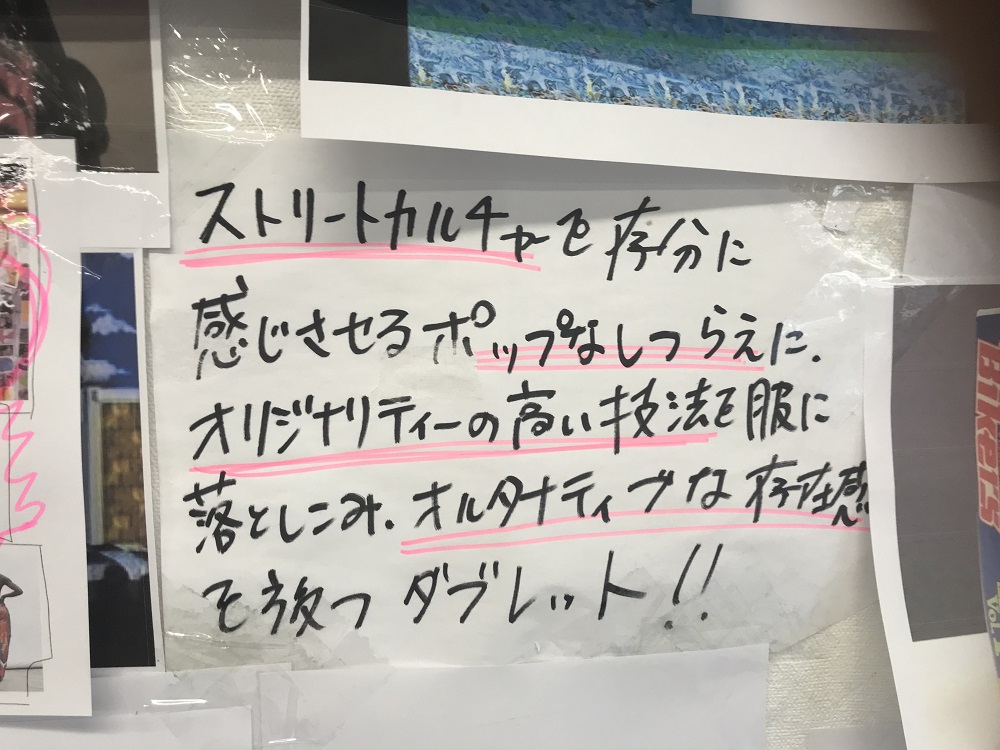 ストリートカルチャーを存分に
感じさせるポップなしつらえに、
オリジナリティーの高い技法を服に
落としこみ、オルタナティブな存在感
を放つ ダブレット!!
Bikers
VOL.